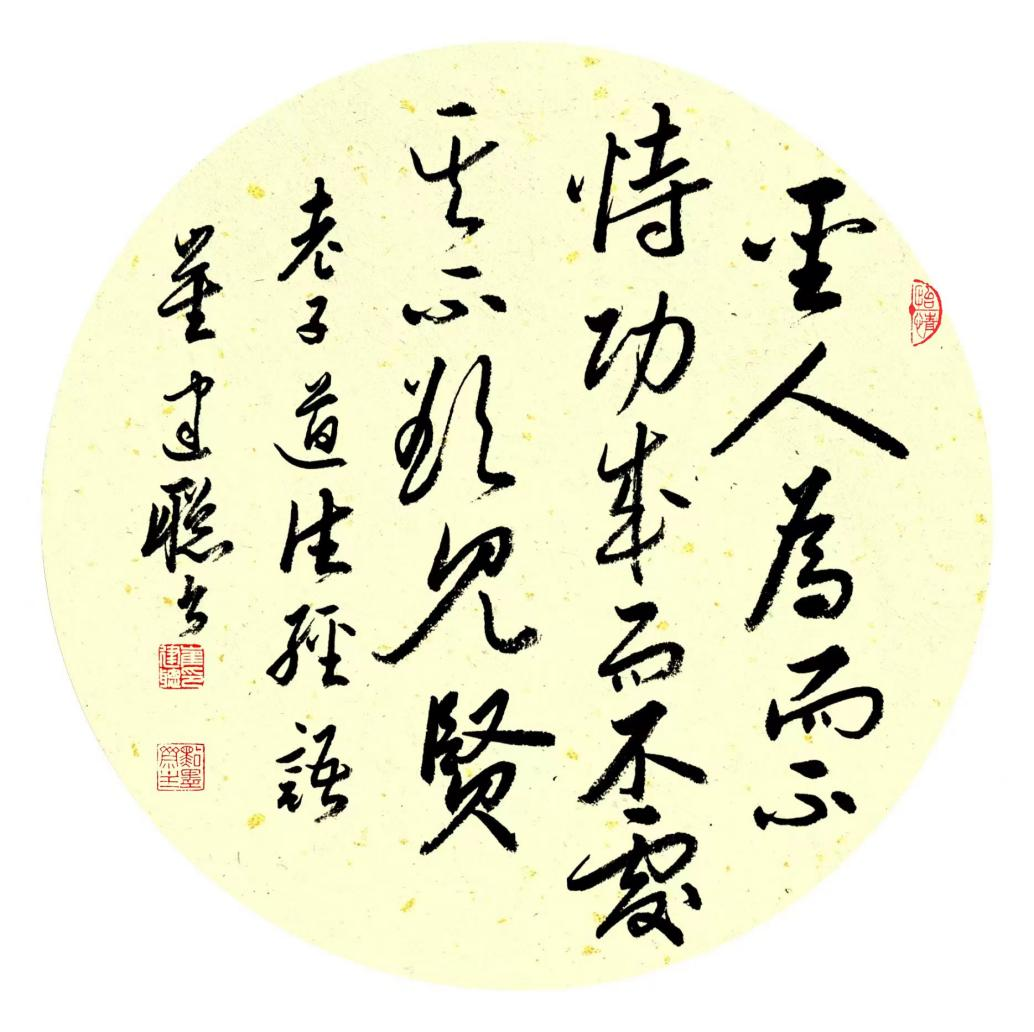 聖人為而不
恃功成而不處
其不欲見賢
老子道德經語
董建聰書